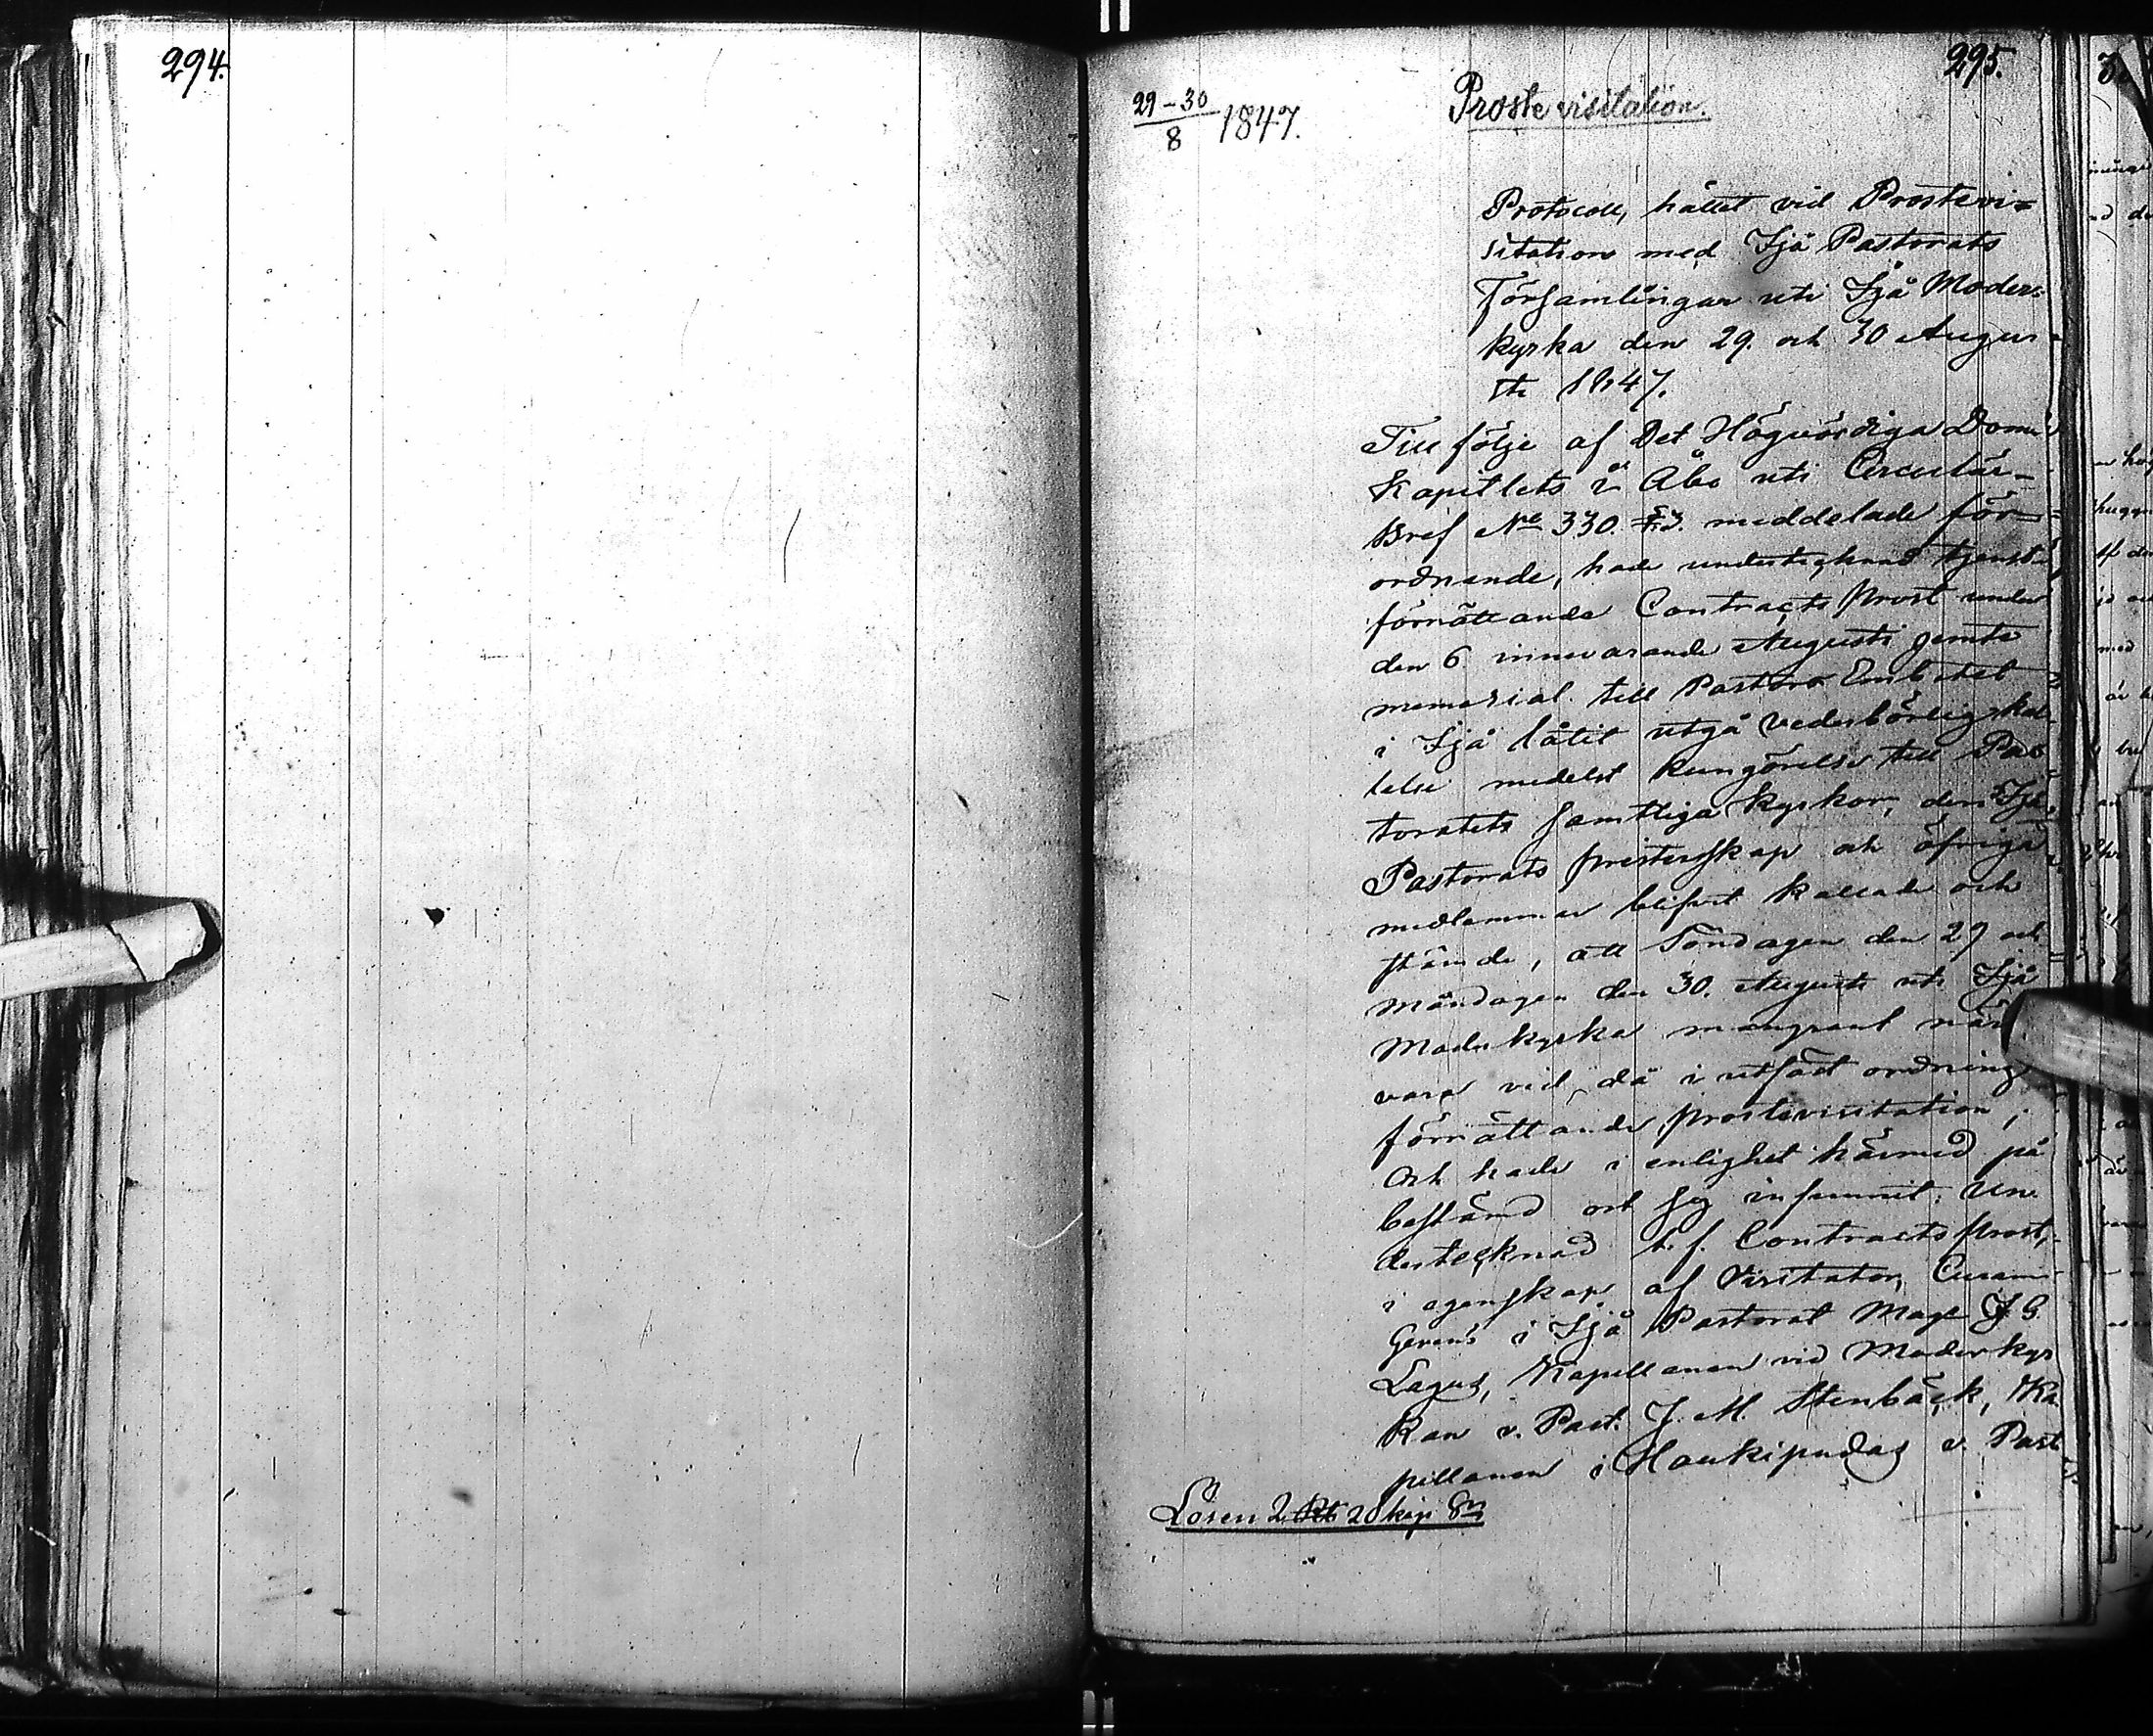 294.
295.
29-30/8 1847.
Prostevisitation.
Protocoll, hållet vid Prostevi=
sitation med Ijå Pastorats
Församlingar uti Ijå Moder=
kyrka den 29. och 30 Augu-
sti 1847.
Till följe af Det Högvördiga Dom-
Kapitlets i Åbo uti Circulär-
Bref No 330. meddelade för=
ordnande, hade undertecknad tjenst-
förrättande Contracts Prost under
den 6 innevarande Augusti jemte
memorial till Pastors Embetet
i Ijå låtit utgå vederbörlig kal-
lelse medelst kungörelse till Pas-
toratets samtliga kyrkor, den Ijå
Pastorats presterskap och öfriga
medlemmar blifvit kallade och
stämde, att Söndagen den 29 och
Måndagen den 30. Augusti uti Ijå
Moderkyrka mangrant när
vara vid då i utsatt ordning
förrättande prostevisitation;
Och hade i enlighet härmed på
bestämd ort sig infunnit: Un
dertecknad t. f. Contractsprost,
i egenskap af Visitator, Curam
Gerens i Ijå Pastorat Mag. J. G.
Lagus, Kapellanen vid Moderkyr
kan v. Past. J. M. Stenbäck, Ka
pellanen i Haukipudas v. Past
Lösen 2 Rb 20 kop Sr